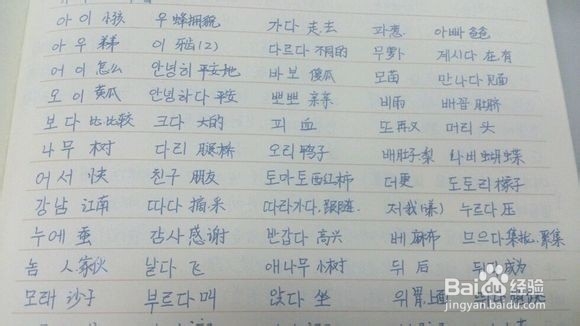 아이 小孩 우 蜂拥貌 가다 走,去 파 葱 아빠 爸爸
아우 弟弟 이 牙齿(2) 다르다 不同的 무 萝卜 계시다 在,有
어이 怎么 안녕히 平安地 바보 傻瓜 모 苗 만나다 见面
오이 黄瓜 안녕하다 平安 뽀뽀 亲亲 비 雨 배꼽 肚脐
보다 比,比较 크다 大的 피 血 또 再,又 머리 头
나무 树 다리 腿,桥 오리 鸭子 배 肚子,梨 나비 蝴蝶
어서 快 친구 朋友 토마토 西红柿 더 更 도토리 橡子
강남 江南 따다 摘,采 따라가다 跟随 저 我(谦) 누르다 压
누에 蚕 감사 感谢 반갑다 高兴 베 麻布 모으다 集拢,累集
놈 人,家伙 날다 飞 애나무 小树 뒤 后 되다 成为
모래 沙子 부르다 叫 앉다 坐 위 胃,上面
Bai 百度经验
jingyan.baidu.com